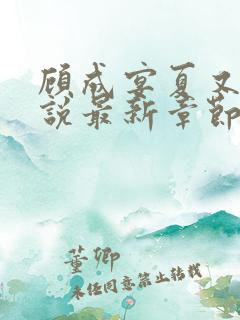 顾咸宴夏又
说最新章节
董卿
未经同意禁止转载